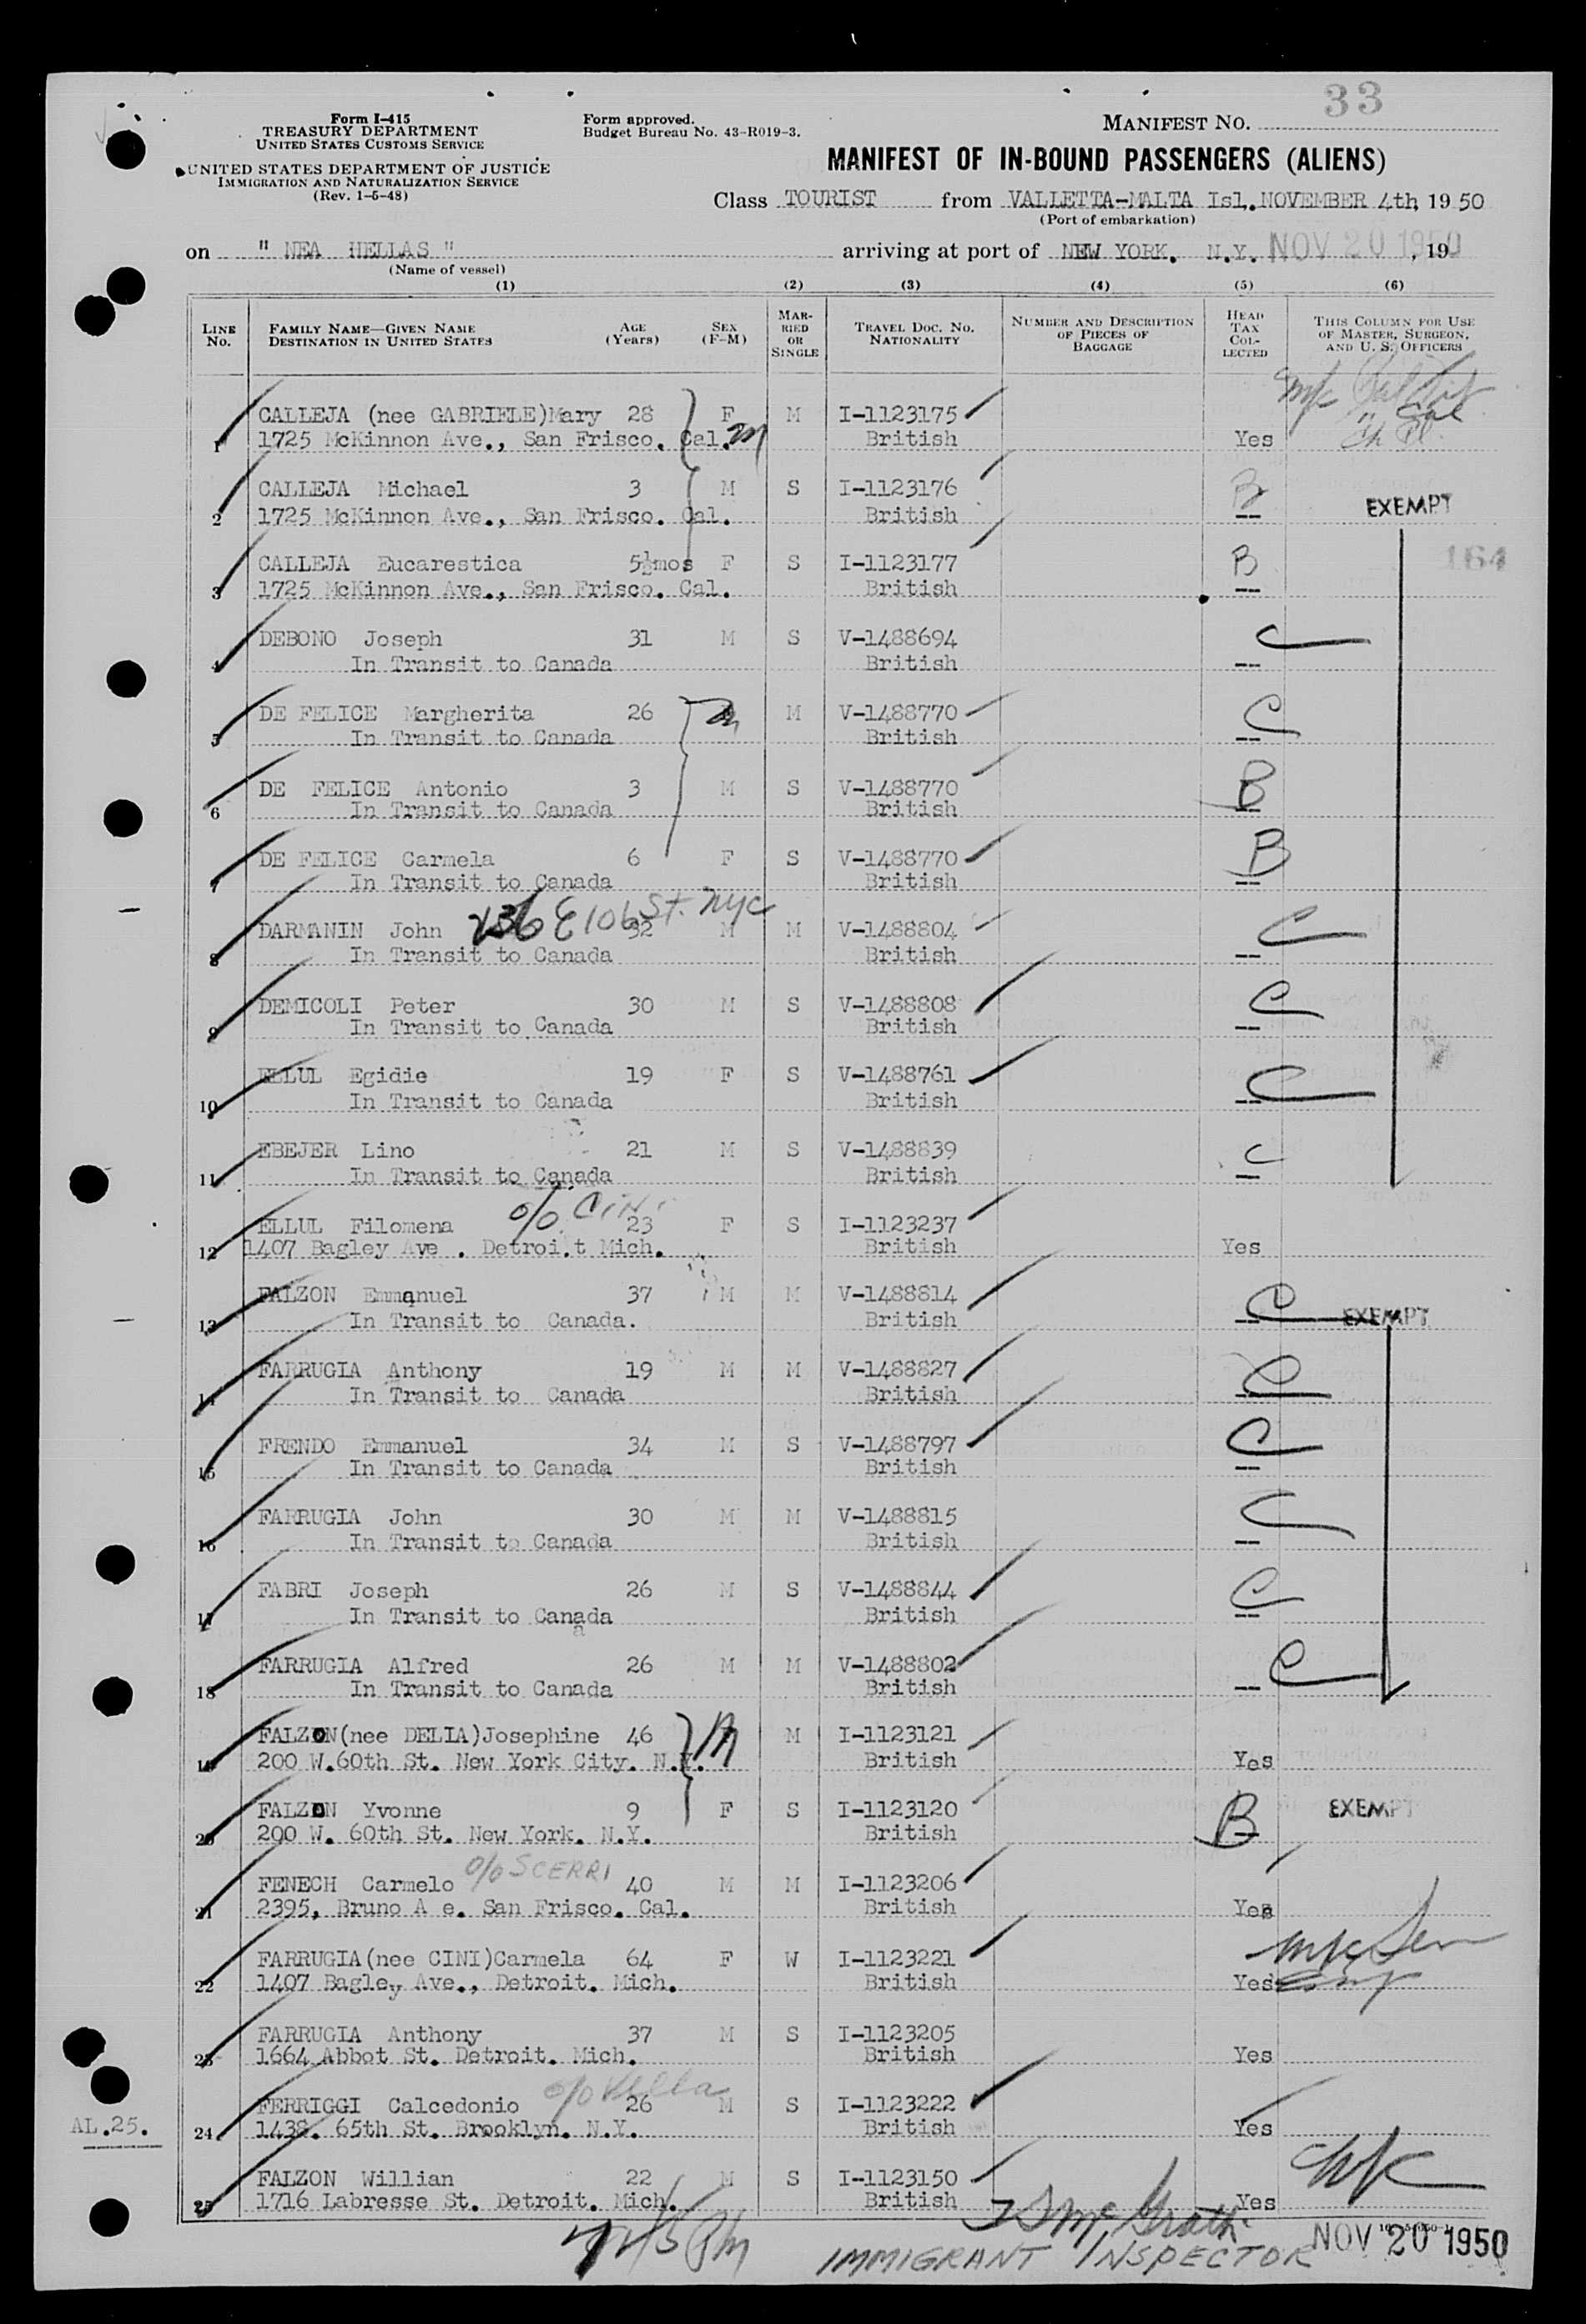 33
Form I-415
TREASURY DEPARTMENT
UNITED STATES CUSTOMS SERVICE
UNITED STATES DEPARTMENT OF JUSTICE
IMMIGRATION AND NATURALIZATION SERVICE
(Rev. 1-5-48)
Form approved.
Budget Bureau No. 43-R019-3.
MANIFEST NO.
MANIFEST OF IN-BOUND PASSENGERS (ALIENS)
Class TOURIST from VALLETTA-MALTA Isl. NOVEMBER 4th, 19 50
(Port of embarkation)
on " NEA HELLAS " arriving at port of NEW YORK. N.Y. NOV 20 1950, 19
(Name of vessel)
(1) (2) (3) (4) (5) (6)
LINE No. FAMILY NAME—GIVEN NAME DESTINATION IN UNITED STATES AGE (Years) SEX (F-M) MARRIED OR SINGLE TRAVEL DOC. NO. NATIONALITY NUMBER AND DESCRIPTION OF PIECES OF BAGGAGE HEAD TAX COLLECTED THIS COLUMN FOR USE OF MASTER, SURGEON, AND U. S. OFFICERS
CALLEJA (nee GABRIELE)Mary 28 F M I-1123175
1 1725 McKinnon Ave., San Frisco. Cal. m British Yes
CALLEJA Michael 3 M S I-1123176 B EXEMPT
2 1725 McKinnon Ave., San Frisco. Cal. British --
CALLEJA Eucarestica 5½mos F S I-1123177 B 164
3 1725 McKinnon Ave., San Frisco. Cal. British --
DEBONO Joseph 31 M S V-1488694 C
4 In Transit to Canada British --
DE FELICE Margherita 26 m M V-1488770 C
5 In Transit to Canada British --
DE FELICE Antonio 3 M S V-1488770 B
6 In Transit to Canada British --
DE FELICE Carmela 6 F S V-1488770 B
7 In Transit to Canada British --
236 E 106 St. nyc
DARMANIN John 32 M M V-1488804 C
8 In Transit to Canada British --
DEMICOLI Peter 30 M S V-1488808 C
9 In Transit to Canada British --
ELLUL Egidie 19 F S V-1488761 C
10 In Transit to Canada British --
EBEJER Lino 21 M S V-1488839 C
11 In Transit to Canada British --
c/o CINI
ELLUL Filomena 23 F S I-1123237
12 1407 Bagley Ave . Detroi.t Mich. British Yes
FALZON Emmanuel 37 M M V-1488814 C EXEMPT
13 In Transit to Canada. British --
FARRUGIA Anthony 19 M M V-1488827 C
14 In Transit to Canada British --
FRENDO Emmanuel 34 M S V-1488797 C
15 In Transit to Canada British --
FARRUGIA John 30 M M V-1488815 C
16 In Transit to Canada British --
FABRI Joseph 26 M S V-1488844 C
17 In Transit to Canada British --
FARRUGIA Alfred 26 M M V-1488802 C
18 In Transit to Canada British --
FALZON(nee DELIA)Josephine 46 m M I-1123121
19 200 W.60th St. New York City. N.Y. British Yes
FALZON Yvonne 9 F S I-1123120 B EXEMPT
20 200 W. 60th St. New York. N.Y. British --
c/o SCERRI
FENECH Carmelo 40 M M I-1123206
21 2395, Bruno A e. San Frisco. Cal. British Yes
FARRUGIA(nee CINI)Carmela 64 F W I-1123221
22 1407 Bagley Ave., Detroit. Mich. British Yes
FARRUGIA Anthony 37 M S I-1123205
23 1664 Abbot St. Detroit. Mich. British Yes
c/o Vella
FERRIGGI Calcedonio 26 M S I-1123222
AL.25. 24 1438. 65th St. Brooklyn. N.Y. British Yes
FALZON Willian 22 M S I-1123150
25 1716 Labresse St. Detroit. Mich. British Yes
McGrath
IMMIGRANT INSPECTOR NOV 20 1950